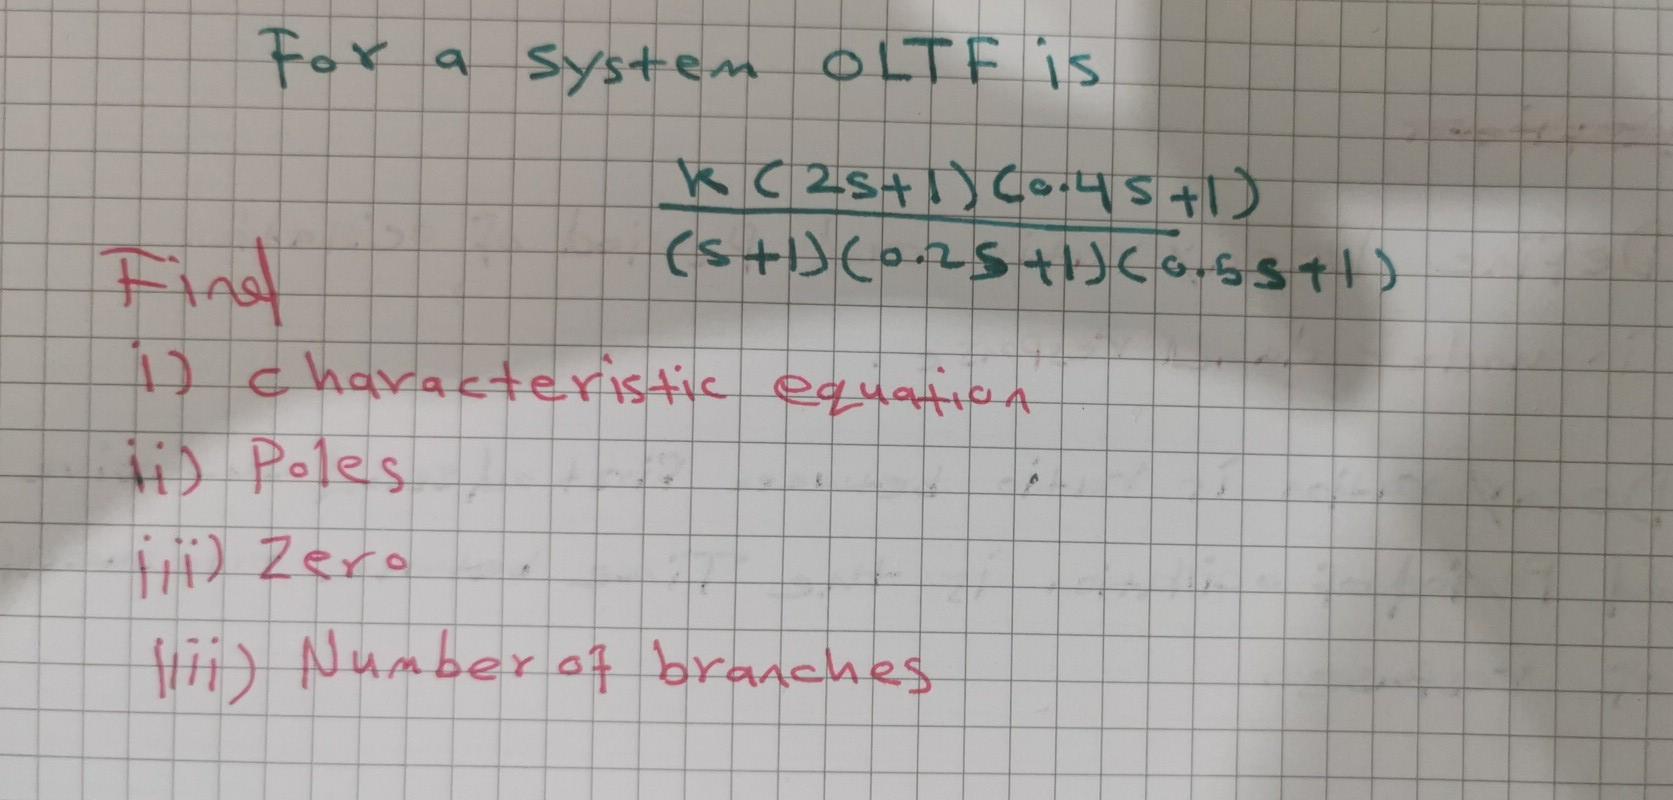 For a system OLTF is
k(2s+1)(0.4s+1)
(s+1)(0.2s+1)(0.5s+1)
Find
i) characteristic equation
ii) Poles
iii) Zero
iiii) Number of branches